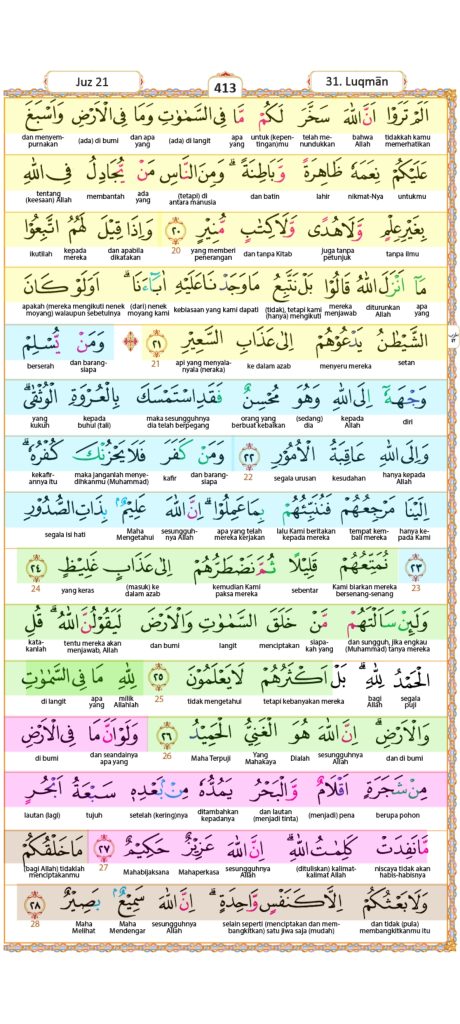 Juz 21
413
31. Luqmān
اَلَمْ تَرَوْا اَنَّ اللّٰهَ سَخَّرَ لَكُمْ مَّا فِى السَّمٰوٰتِ وَمَا فِى الْاَرْضِ وَاَسْبَغَ
tidakkah kamu memerhatikan bahwa Allah telah me-nundukkan untuk (kepen-tingan)mu apa yang (ada) di langit dan apa yang (ada) di bumi dan menyem-purnakan
عَلَيْكُمْ نِعَمَهٗ ظَاهِرَةً وَّبَاطِنَةً ۗ وَمِنَ النَّاسِ مَنْ يُّجَادِلُ فِى اللّٰهِ
untukmu nikmat-Nya lahir dan batin (tetapi) di antara manusia ada yang membantah tentang (keesaan) Allah
بِغَيْرِ عِلْمٍ وَّلَا هُدًى وَّلَا كِتٰبٍ مُّنِيْرٍ ٢٠ وَاِذَا قِيْلَ لَهُمُ اتَّبِعُوْا
tanpa ilmu juga tanpa petunjuk dan tanpa Kitab yang memberi penerangan 20 dan apabila dikatakan kepada mereka ikutilah
مَآ اَنْزَلَ اللّٰهُ قَالُوْا بَلْ نَتَّبِعُ مَا وَجَدْنَا عَلَيْهِ اٰبَاۤءَنَا ۗ اَوَلَوْ كَانَ
apa yang diturunkan Allah mereka menjawab (tidak), tetapi kami (hanya) mengikuti kebiasaan yang kami dapati (dari) nenek moyang kami apakah (mereka mengikuti nenek moyang) walaupun sebetulnya
الشَّيْطٰنُ يَدْعُوْهُمْ اِلٰى عَذَابِ السَّعِيْرِ ٢١ وَمَنْ يُّسْلِمْ
setan menyeru mereka ke dalam azab api yang menyala-nyala (neraka) 21 dan barang-siapa berserah
وَجْهَهٗٓ اِلَى اللّٰهِ وَهُوَ مُحْسِنٌ فَقَدِ اسْتَمْسَكَ بِالْعُرْوَةِ الْوُثْقٰى ۗ
diri kepada Allah (sedang) dia orang yang berbuat kebaikan maka sesungguhnya dia telah berpegang kepada buhul (tali) yang kukuh
وَاِلَى اللّٰهِ عَاقِبَةُ الْاُمُوْرِ ٢٢ وَمَنْ كَفَرَ فَلَا يَحْزُنْكَ كُفْرُهٗ ۗ
hanya kepada Allah kesudahan segala urusan 22 dan barang-siapa kafir maka janganlah menye-dihkanmu (Muhammad) kekafir-annya itu
اِلَيْنَا مَرْجِعُهُمْ فَنُنَبِّئُهُمْ بِمَا عَمِلُوْا ۗ اِنَّ اللّٰهَ عَلِيْمٌ ۢ بِذَاتِ الصُّدُوْرِ
hanya ke-pada Kami tempat kem-bali mereka lalu Kami beritakan kepada mereka apa yang telah mereka kerjakan sesungguh-nya Allah Maha Mengetahui segala isi hati
٢٣ نُمَتِّعُهُمْ قَلِيْلًا ثُمَّ نَضْطَرُّهُمْ اِلٰى عَذَابٍ غَلِيْظٍ ٢٤
23 Kami biarkan mereka bersenang-senang sebentar kemudian Kami paksa mereka (masuk) ke dalam azab yang keras 24
وَلَىِٕنْ سَاَلْتَهُمْ مَّنْ خَلَقَ السَّمٰوٰتِ وَالْاَرْضَ لَيَقُوْلُنَّ اللّٰهُ ۗ قُلِ
dan sungguh, jika engkau (Muhammad) tanya mereka siapa-kah yang menciptakan langit dan bumi tentu mereka akan menjawab, Allah kata-kanlah
الْحَمْدُ لِلّٰهِ ۗ بَلْ اَكْثَرُهُمْ لَا يَعْلَمُوْنَ ٢٥ لِلّٰهِ مَا فِى السَّمٰوٰتِ
segala puji bagi Allah tetapi kebanyakan mereka tidak mengetahui 25 milik Allahlah apa yang di langit
وَالْاَرْضِ ۗ اِنَّ اللّٰهَ هُوَ الْغَنِيُّ الْحَمِيْدُ ٢٦ وَلَوْ اَنَّ مَا فِى الْاَرْضِ
dan di bumi sesungguhnya Allah Dialah Yang Mahakaya Maha Terpuji 26 dan seandainya apa yang di bumi
مِنْ شَجَرَةٍ اَقْلَامٌ وَّالْبَحْرُ يَمُدُّهٗ مِنْۢ بَعْدِهٖ سَبْعَةُ اَبْحُرٍ
berupa pohon (menjadi) pena dan lautan (menjadi tinta) ditambahkan kepadanya setelah (kering)nya tujuh lautan (lagi)
مَّا نَفِدَتْ كَلِمٰتُ اللّٰهِ ۗ اِنَّ اللّٰهَ عَزِيْزٌ حَكِيْمٌ ٢٧ مَا خَلْقُكُمْ
niscaya tidak akan habis-habisnya (dituliskan) kalimat-kalimat Allah sesungguhnya Allah Mahaperkasa Mahabijaksana 27 (bagi Allah) tidaklah menciptakanmu
وَلَا بَعْثُكُمْ اِلَّا كَنَفْسٍ وَّاحِدَةٍ ۗ اِنَّ اللّٰهَ سَمِيْعٌ ۢ بَصِيْرٌ ٢٨
dan tidak (pula) membangkitkanmu itu selain seperti (menciptakan dan mem-bangkitkan) satu jiwa saja (mudah) sesungguhnya Allah Maha Mendengar Maha Melihat 28